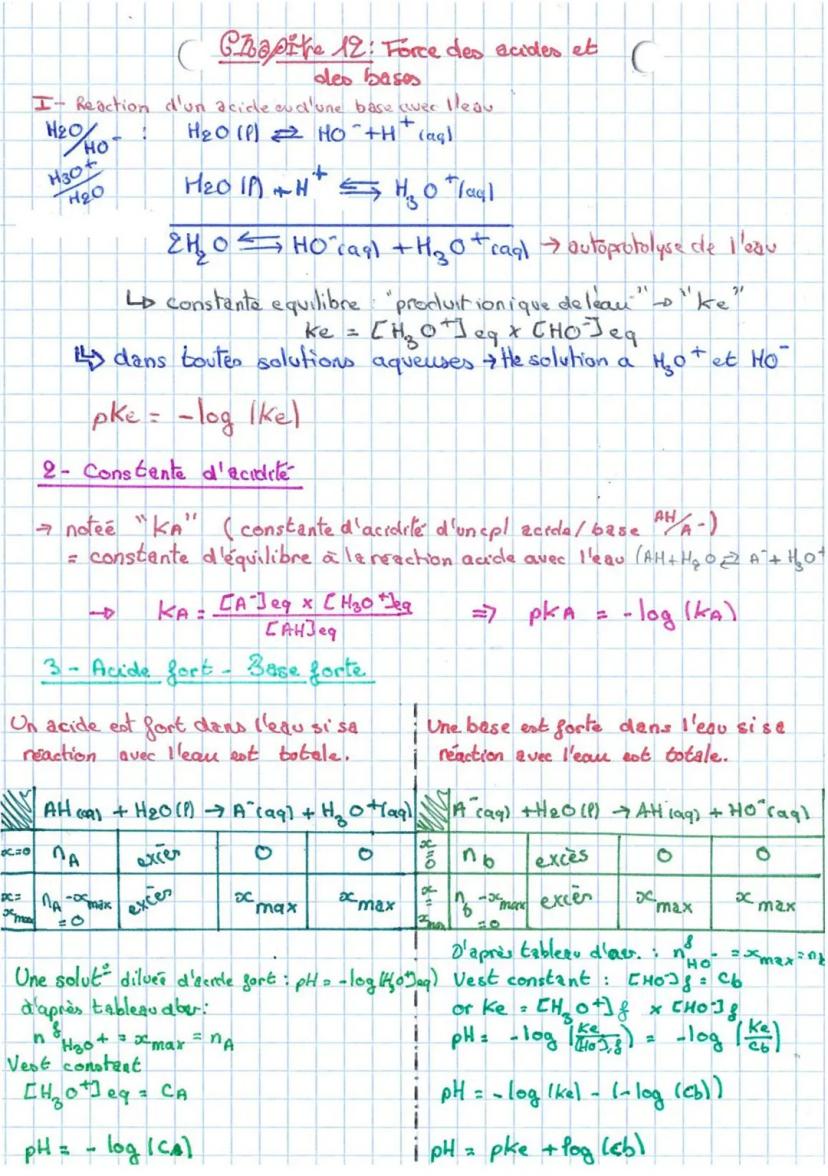 Chapitre 12 : Force des acides et
des bases
I - Reaction d'un acide ou d'une base avec l'eau
H2O/HO⁻ : H2O (l) ⇄ HO⁻ + H⁺ (aq)
H3O+/H2O H2O (l) + H⁺ ⇆ H₃O⁺(aq)
2H₂O ⇆ HO⁻(aq) + H₃O⁺(aq) → autoprotolyse de l'eau
↳ constante equilibre : "produit ionique de l'eau" → "Ke"
Ke = [H₃O⁺]eq x [HO⁻]eq
↳ dans toutes solutions aqueuses → Hle solution a H₃O⁺ et HO⁻
pKe = -log (Ke)
2 - Constante d'acidité
→ noteé "KA" (constante d'acidité d'un cpl acide/base AH/A-)
= constante d'équilibre à la reaction acide avec l'eau (AH + H₂O ⇄ A⁻ + H₃O⁺
→ KA = [A⁻]eq x [H3O⁺]eq / [AH]eq ⇒ pKA = -log (KA)
3 - Acide fort - Base forte
Un acide est fort dans l'eau si sa
réaction avec l'eau est totale.
AH(aq) + H2O(l) → A⁻(aq) + H₃O⁺(aq)
x=0 nA excès 0 0
x=xmax nA - xmax = 0 excès xmax xmax
Une solut° diluée d'acide fort : pH = -log(H₃O⁺]eq)
d'après tableau d'av:
nᶠH₃O+ = xmax = nA
V est constant
[H₃O⁺]eq = CA
pH = - log (CA)
Une base est forte dans l'eau si sa
réaction avec l'eau est totale.
A⁻(aq) + H2O (l) → AH(aq) + HO⁻(aq)
x=0 nb excès 0 0
x=xmax nb - xmax = 0 excès xmax xmax
D'après tableau d'av. : nᶠHO⁻ = xmax = nb
V est constant : [HO⁻]f = Cb
or Ke = [H₃O⁺]f x [HO⁻]f
pH = -log (Ke/[HO⁻]f) = -log (Ke/Cb)
pH = -log (Ke) - (-log (Cb))
pH = pKe + log (Cb)